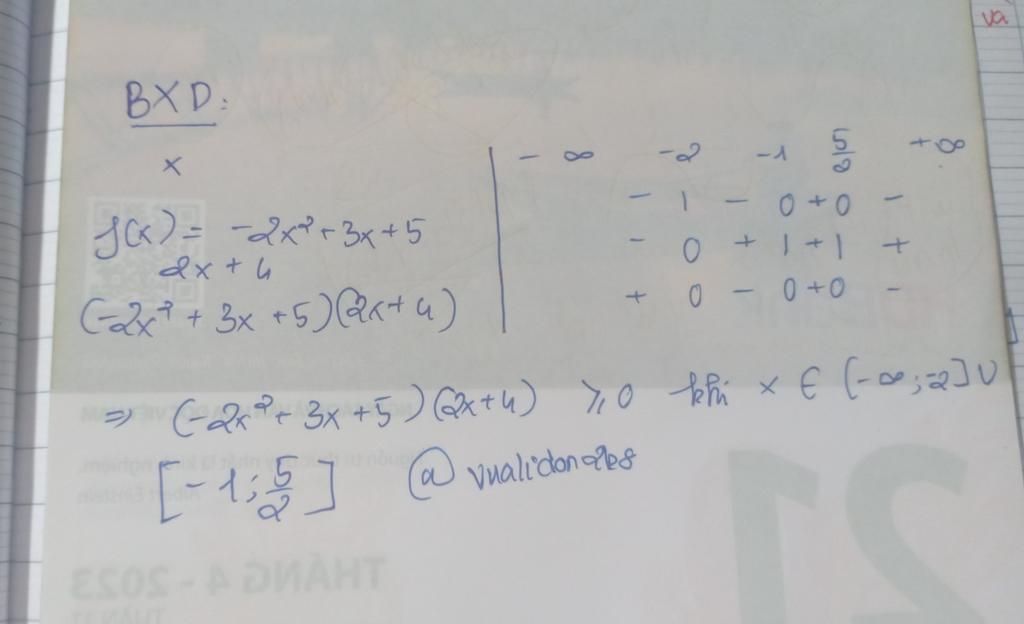 BXD:
x | -∞ -2 -1 5/2 +∞
f(x) = -2x² + 3x + 5 | - | - 0 + 0 -
2x + 4 | - 0 + | + | +
(-2x² + 3x + 5)(2x + 4) | + 0 - 0 + 0 -
⇒ (-2x² + 3x + 5)(2x + 4) ⩾ 0 khi x ∈ (-∞; -2] ∪
[-1; 5/2] @ vualidonales
va
THÁNG 4 - 2023
21